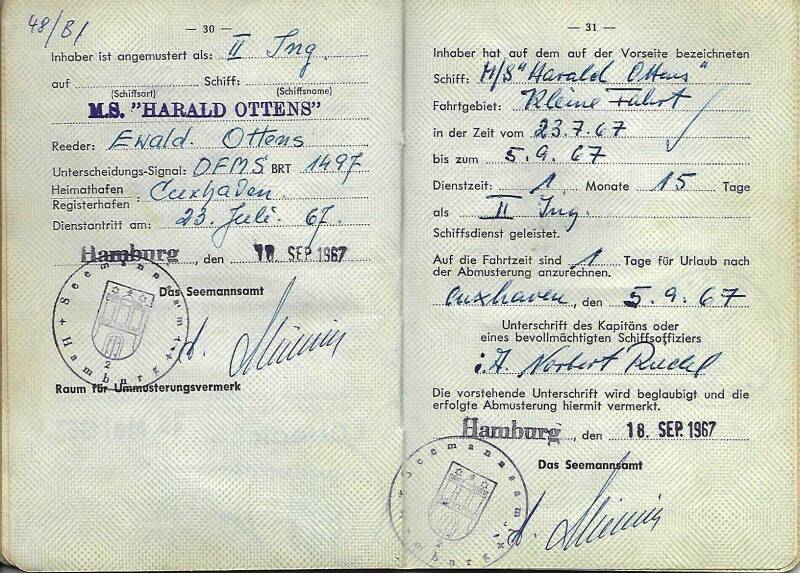 48/B/
— 30 —
Inhaber ist angemustert als: II Ing.
auf Schiff:
(Schiffsart) (Schiffsname)
M.S. "HARALD OTTENS"
Reeder: Ewald. Ottens
Unterscheidungs-Signal: DFMS BRT 1497
Heimathafen
Registerhafen: Cuxhaven.
Dienstantritt am: 23. Juli. 67.
Hamburg, den 18 SEP. 1967
Das Seemannsamt
Seemannsamt Hamburg 2
Raum für Ummusterungsvermerk
— 31 —
Inhaber hat auf dem auf der Vorseite bezeichneten
Schiff: M/S "Harald Ottens"
Fahrtgebiet: Kleine Fahrt
in der Zeit vom 23.7.67
bis zum 5.9.67
Dienstzeit: 1, Monate 15 Tage
als II Ing.
Schiffsdienst geleistet.
Auf die Fahrtzeit sind 1 Tage für Urlaub nach
der Abmusterung anzurechnen.
Cuxhaven, den 5.9.67
Unterschrift des Kapitäns oder
eines bevollmächtigten Schiffsoffiziers
i.A. Norbert
Die vorstehende Unterschrift wird beglaubigt und die
erfolgte Abmusterung hiermit vermerkt.
Hamburg, den 18. SEP. 1967
Das Seemannsamt
Seemannsamt Hamburg 2